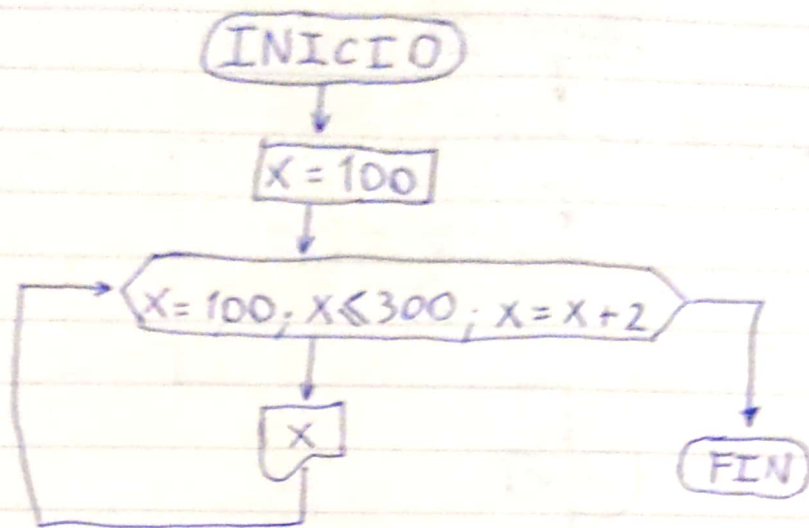 INICIO
X = 100
X = 100; X ≤ 300; X = X + 2
X
FIN